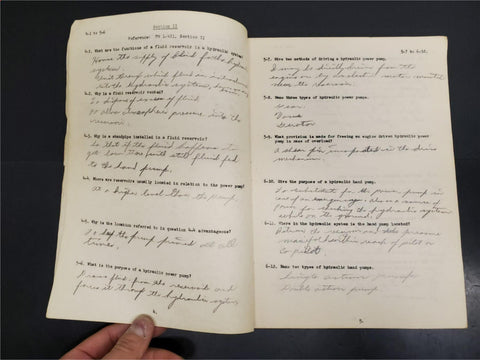 4-1 to 5-6
Section II
Reference: TO 1-421, Section II
4-1. What are the functions of a fluid reservoir in a hydraulic system?
House the supply of fluid for the hydraulic
system.
Unit through which fluid are introduced
into the hydraulic system,
4-2. Why is a fluid reservoir vented?
To dispose of excess of fluid
or allow atmospheric pressure into the
reservoir.
4-3. Why is a standpipe installed in a fluid reservoir?
So that if the fluid happens to
get low, the unit still fluid fed
to the hand pump.
4-4. Where are reservoirs usually located in relation to the power pump?
At a higher level than the pump.
4-5. Why is the location referred to in question 4-4 advantageous?
To keep the pump primed at all
times.
5-6. What is the purpose of a hydraulic power pump?
Draws fluid from the reservoir and
forces it through the hydraulic system
4.
5-7 to 6-12.
5-7. Give two methods of driving a hydraulic power pump.
driven from the
engine or by electric motor
5-8. Name three types of hydraulic power pumps.
Gear
Vane
Gerotor
5-9. What provision is made for freeing an engine driven hydraulic power
pump in case of overload?
A shear pin in the drive
mechanism.
6-10. Give the purpose of a hydraulic hand pump.
To substitute for the power pump in
case of an emergency. Also as a source of
power for checking the hydraulic system
while on the ground.
6-11. Where in the hydraulic system is the hand pump located?
Between the reservoir and the pressure
manifold within reach of pilot or
co-pilot.
6-12. Name two types of hydraulic hand pumps.
Single action pump
Double action pump
5.